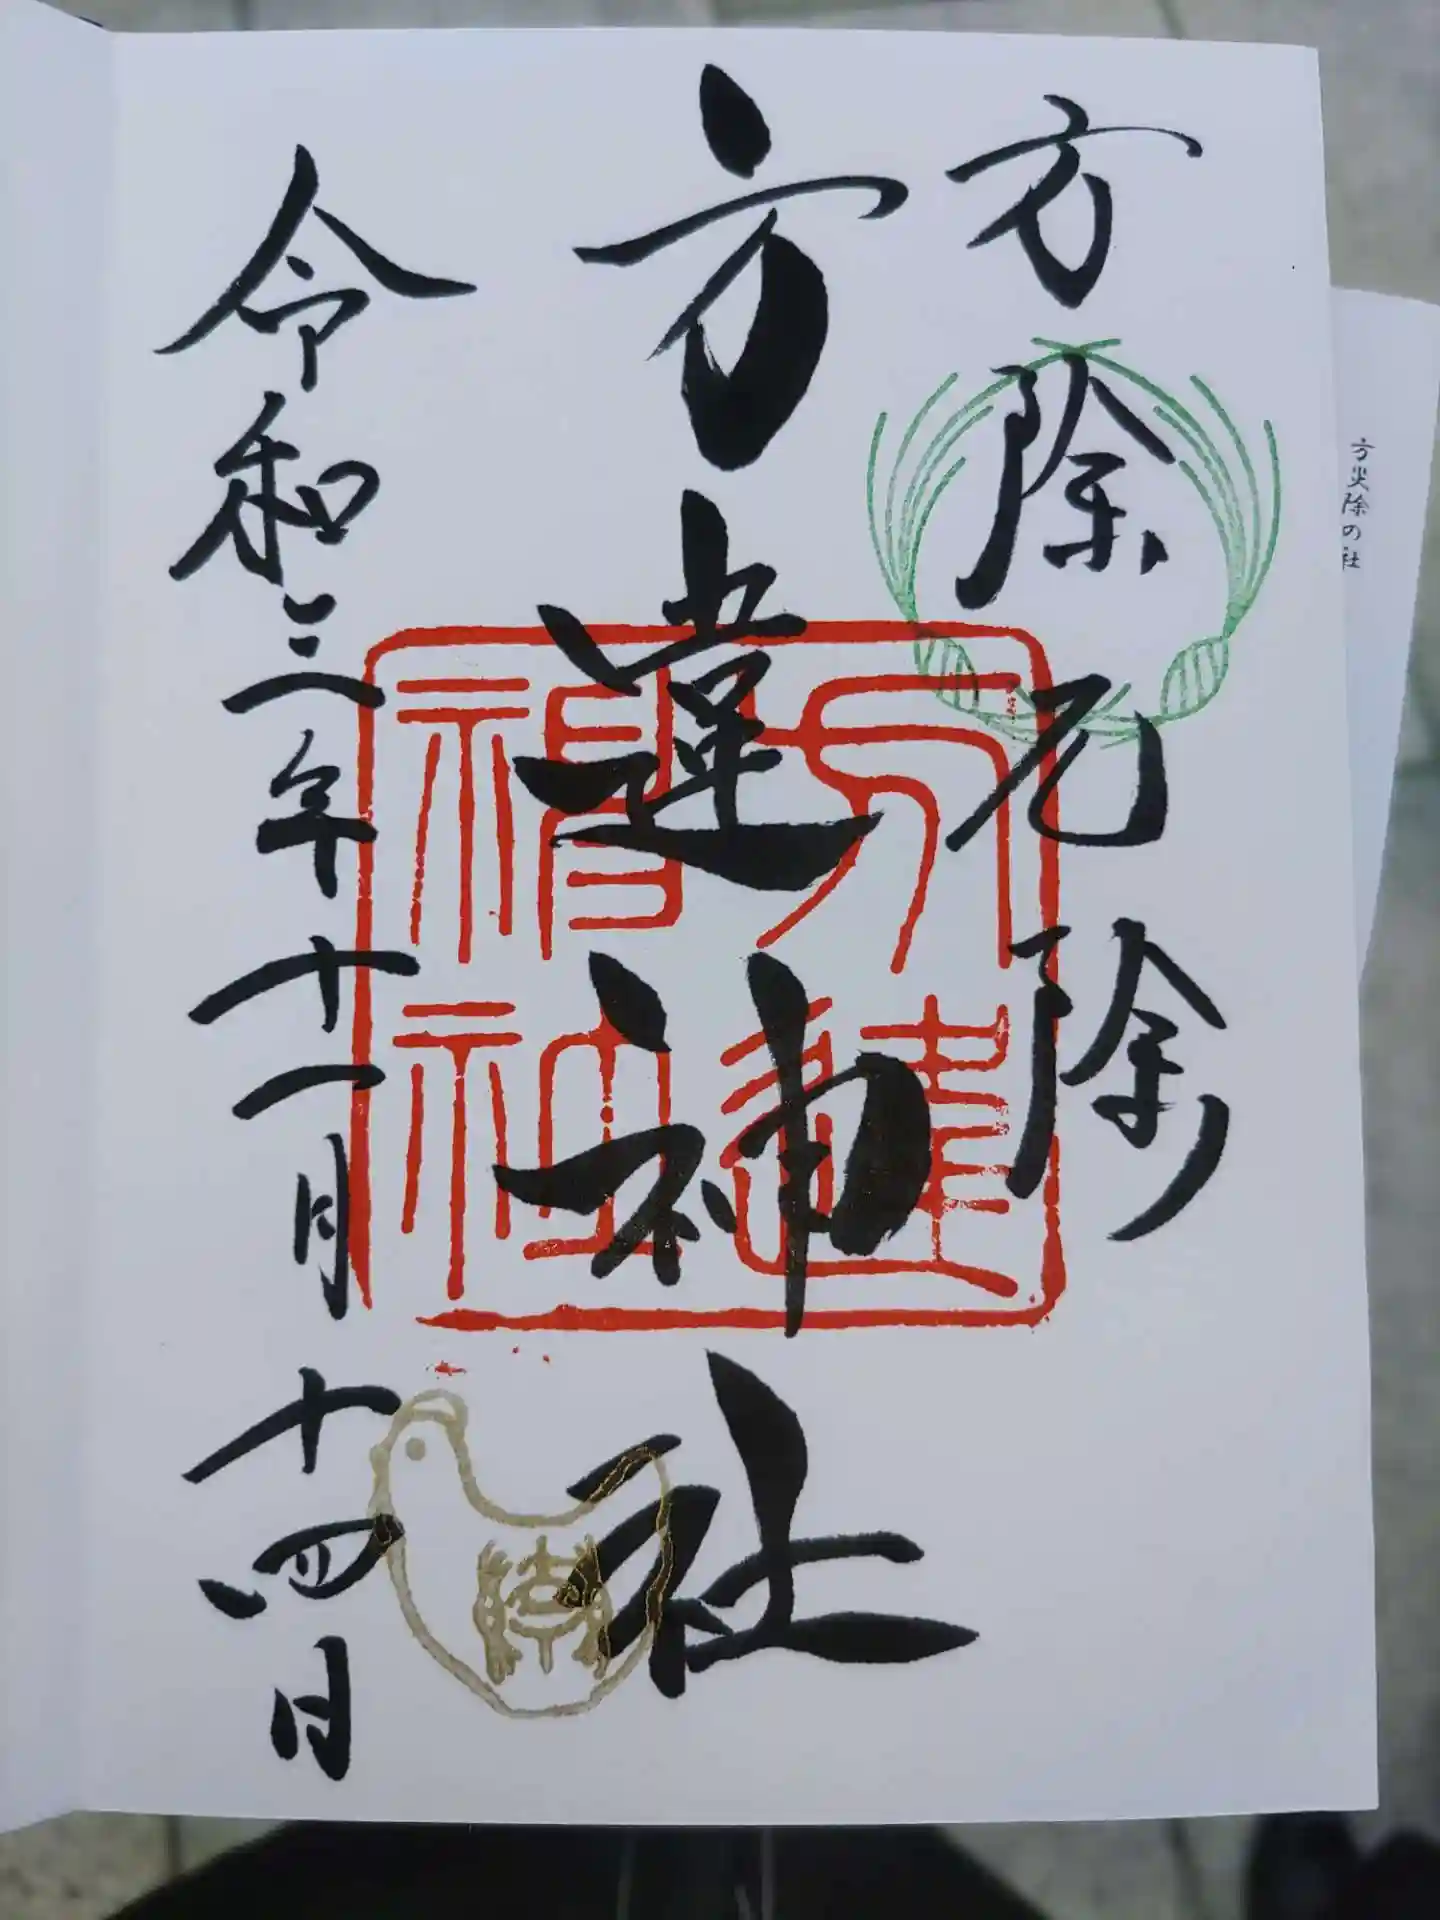 方災除の社
方除元除
方違神社
方違神社
令和三年十一月十四日